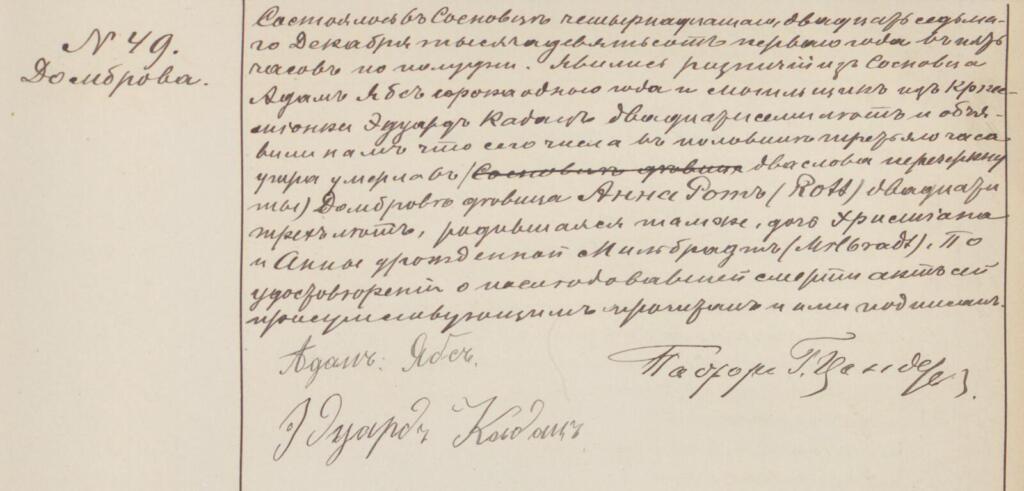 N 49.
Домброва.
Состоялось въ Сосновцѣ четырнадцатаго, двадцать седьма-
го Декабря тысяча девятьсотъ перваго года въ пять
часовъ по полудни. Явились рѣзничій изъ Сосновца
Адамъ Ябсъ сорока одного года и могильщикъ изъ
Эдуардъ Кадацъ двадцати семи лѣтъ и объя-
вили намъ что сего числа въ половинѣ третьяго часа
утра умерла въ /Сосновцѣ дѣвица два слова перечеркну
ты) Домбровѣ дѣвица Анна Ротъ (Rott) двадцати
трехъ лѣтъ, родившаяся тамже, дочь Христіана
и Анны урожденной Мильбрадтъ (Milbradt). По
удостовѣреніи о послѣдовавшей смерти актъ сей
присутствующимъ прочитанъ и ими подписанъ.
Адамъ Ябсъ.
Пасторъ Г. Цандеръ
Эдуардъ Кадацъ